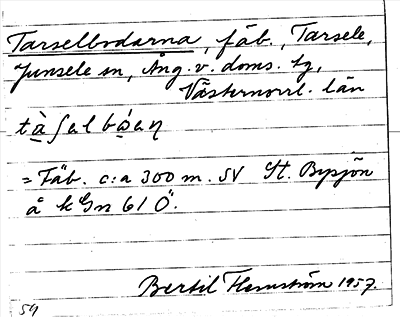 Tarselbodarna, fäb., Tarsele,
Junsele sn, Ång. v. doms. tg,
Västernorrl. län
tàʃalbóaɳ
= Fäb. c:a 300 m. SV St. Bysjön
å kGn 61 Ö.
Bertil Flemström 1957
59